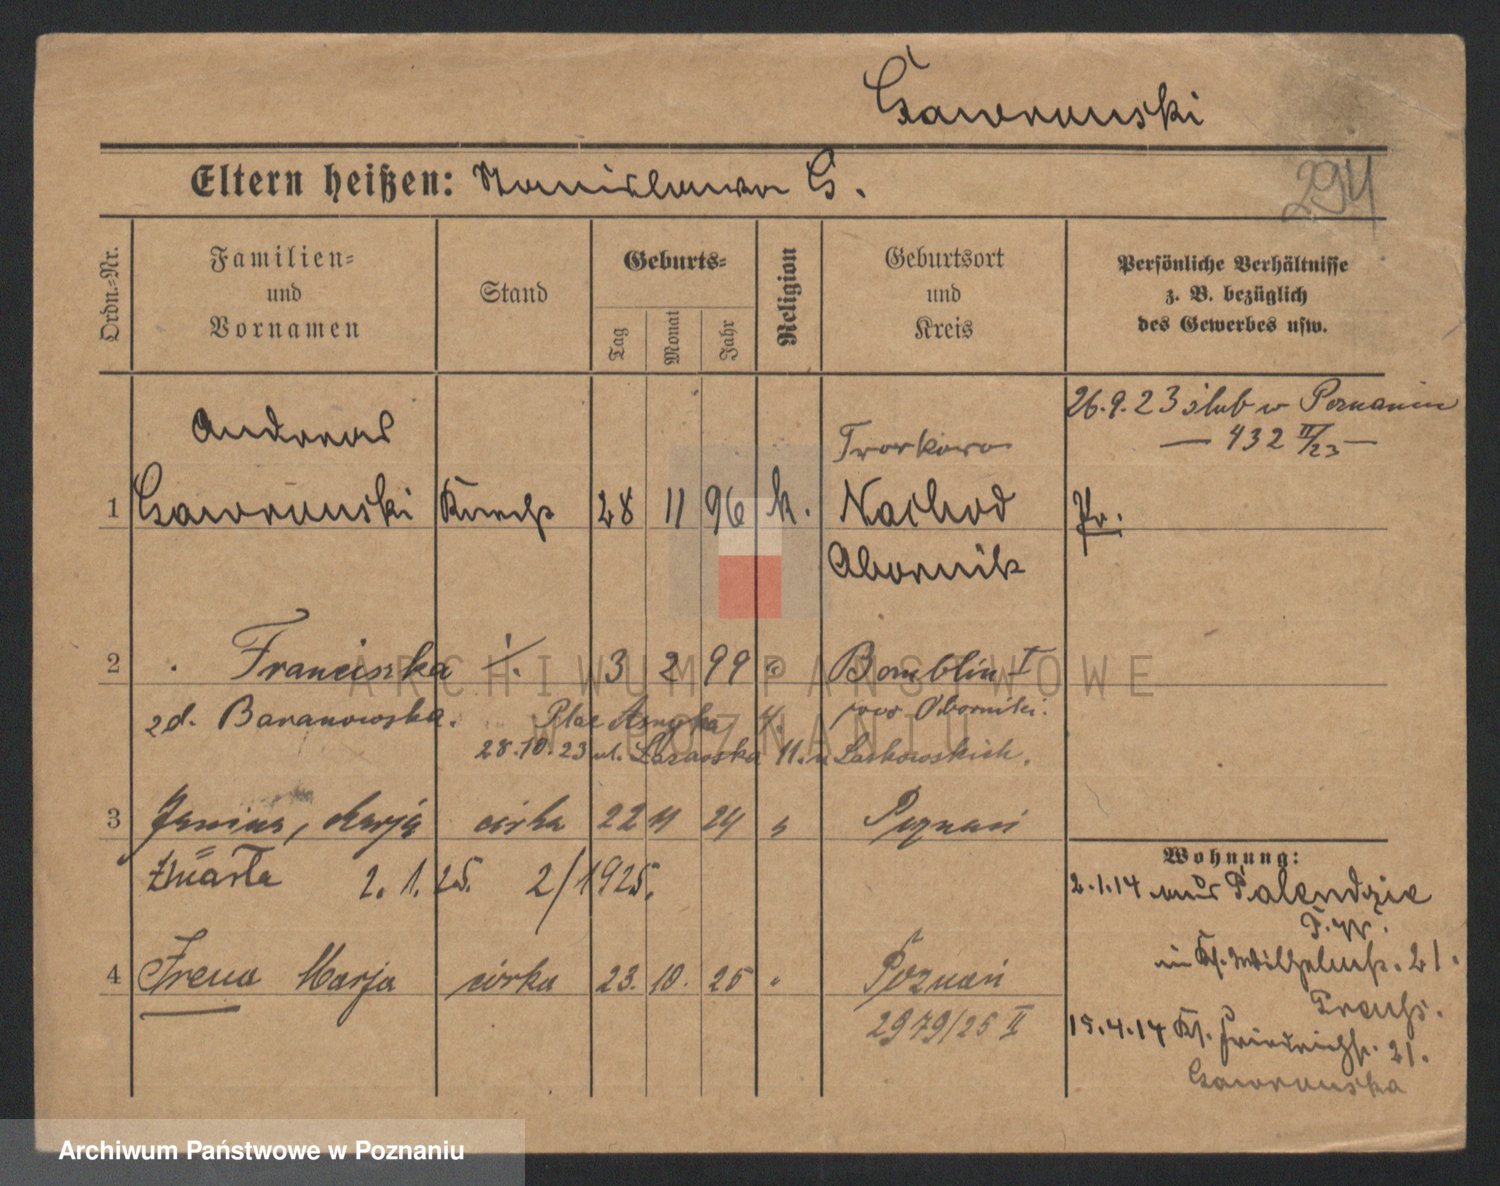 Gawronski
Eltern heißen: Stanislawa G.
294
Ordn.-Nr.
Familien-
und
Vornamen
Stand
Geburts-
Tag
Monat
Jahr
Religion
Geburtsort
und
Kreis
Persönliche Verhältnisse
z. B. bezüglich
des Gewerbes usw.
26.9.23 ślub w Poznaniu
— 432 II/23 —
Andreas
1 Gawronski Knecht 28 11 96 k. Nachod Pr.
Obornik
2 Franciszka 3 2 99 " Bomblin
zd. Baranowska. Plac Asnyka 4. pow Oborniki.
28.10.23 ul. 11. u Laskowskich.
3 Janina, Marja córka 22 11 24 " Poznań
zmarła 2.1.25. 2/1925.
4 Irena Marja córka 23. 10. 25 " Poznań
2979/25 II
Wohnung:
2.1.14 aus Palendzie
in Kl. Wilhelmstr. 21.
15.4.14 Kl. Friedrichstr. 21.
Gawronska
ARCHIWUM PAŃSTWOWE
W POZNANIU
Archiwum Państwowe w Poznaniu